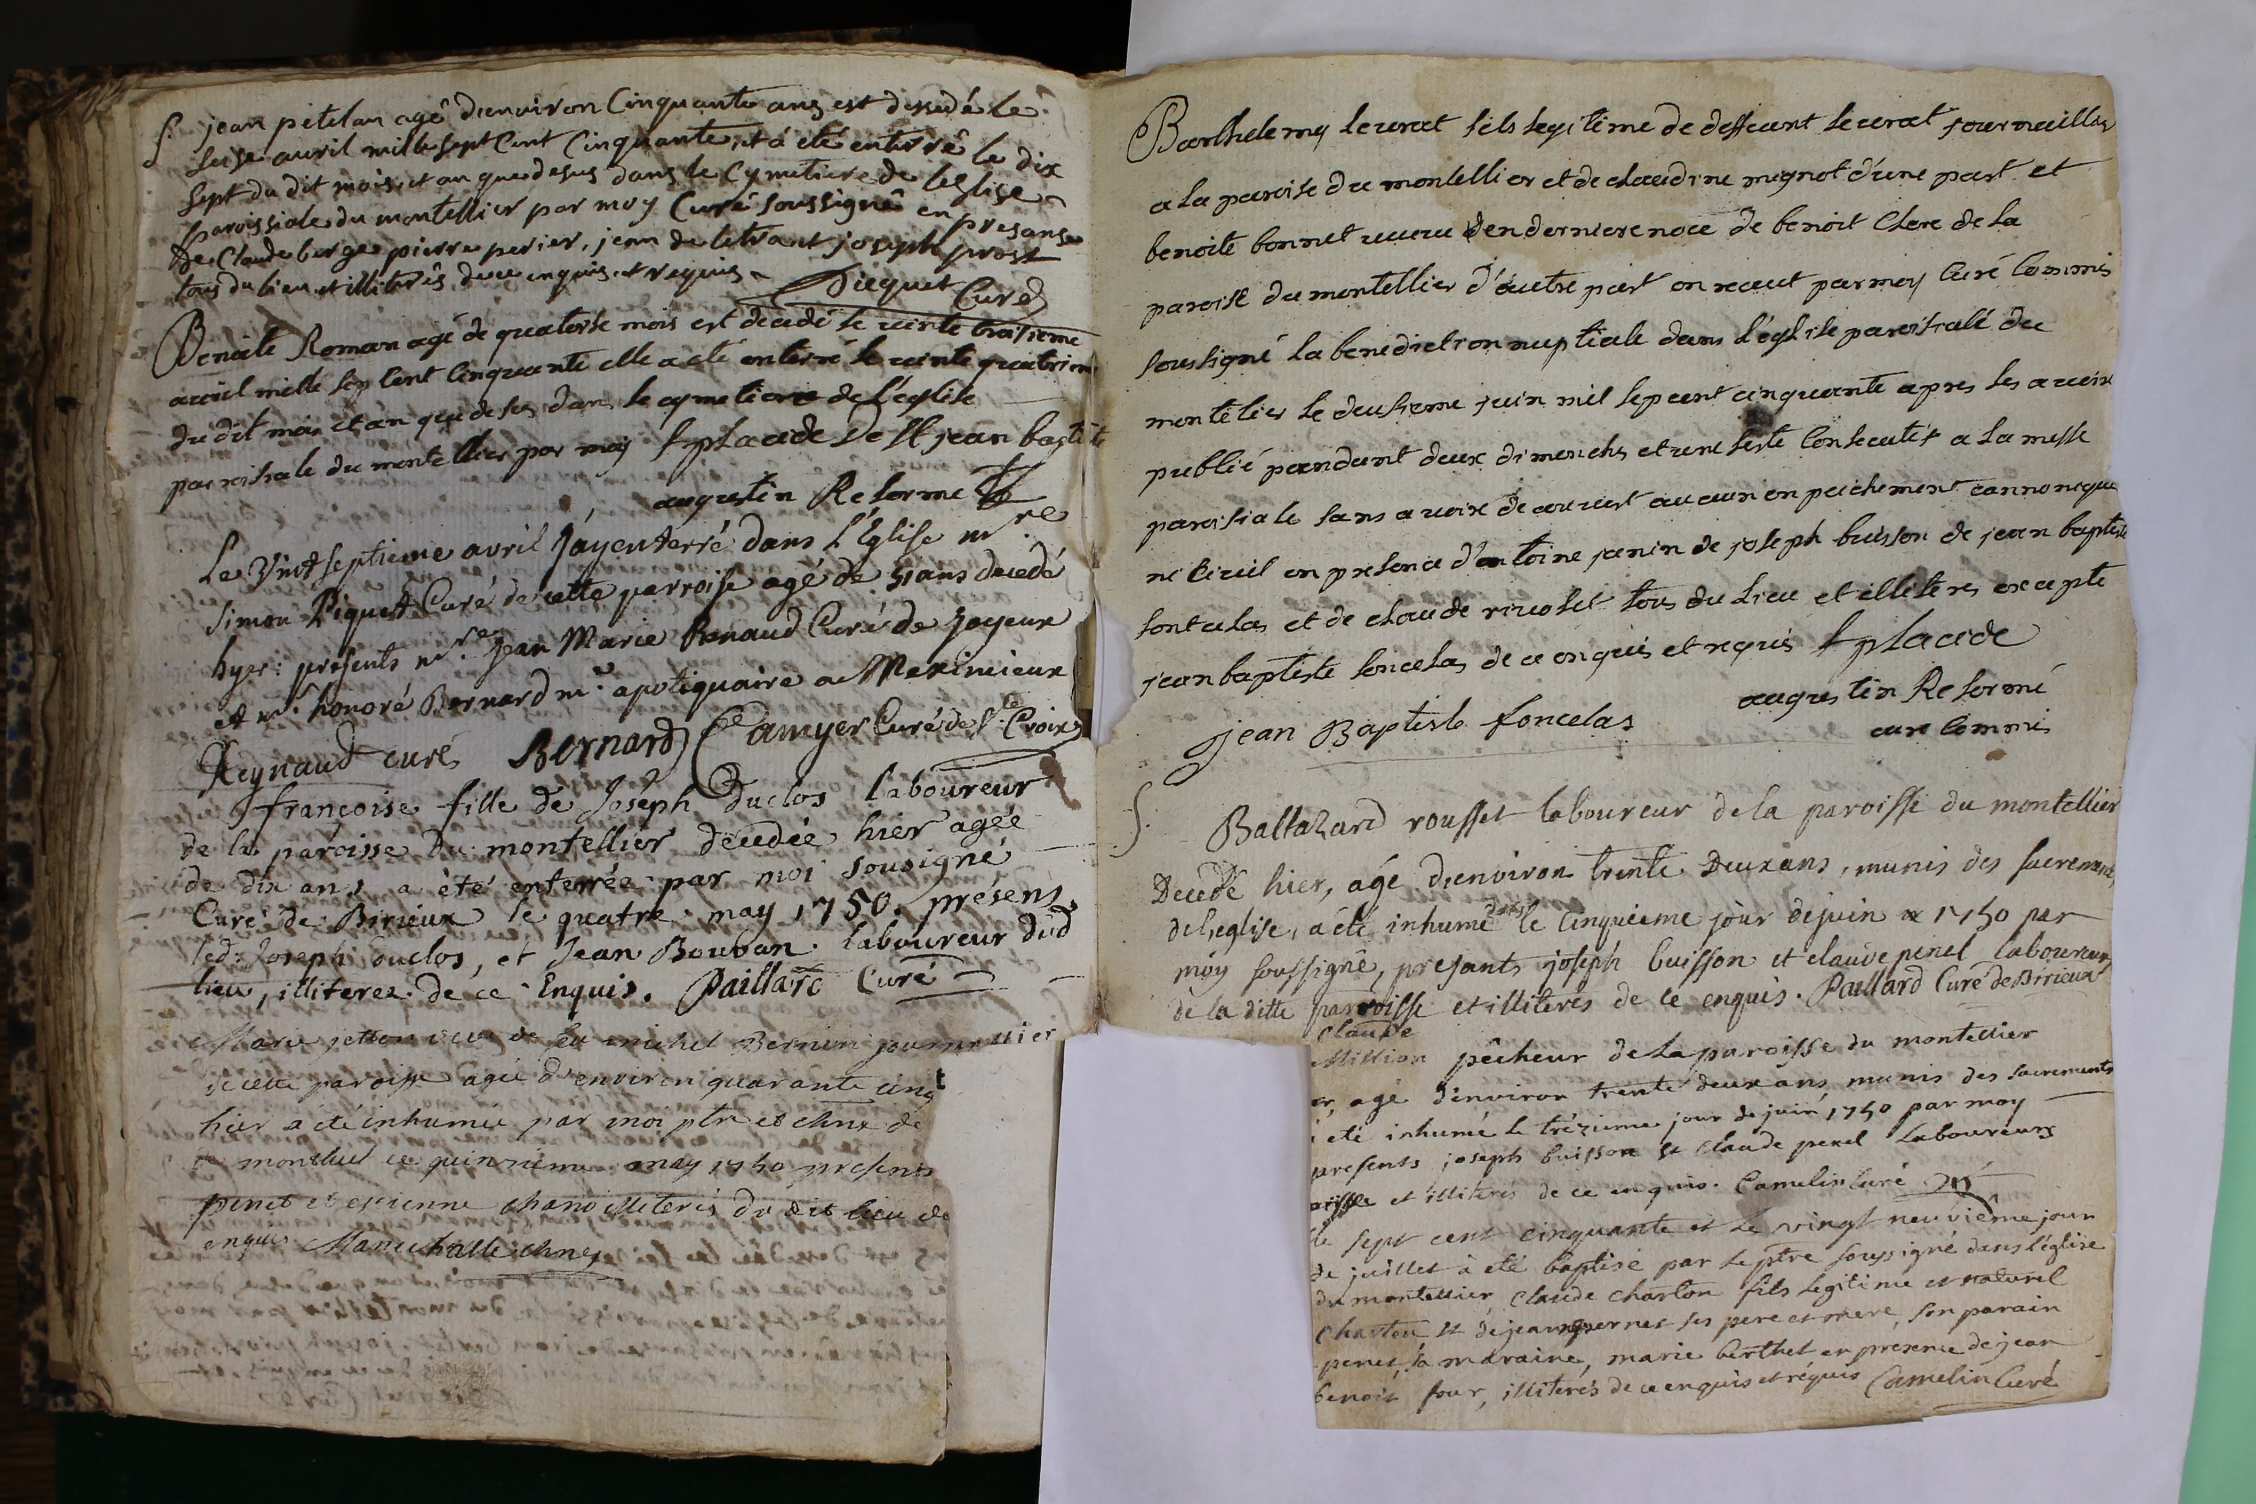 S. jean petelan agê d'environ Cinquante ans est dessedé le
seise avril mille sept Cent Cinquante, et à eté enterrê le dix
sept du dit mois, et an que desus dans le Cymetiere de leglise
paroissiale du montellier par moy Curé soussignê en presanse
de Claude berge pierre perier, jean de letrant joseph prost
tous du lieu et illiterês de ce enquis et requis Piequet Curé
Benoite Roman agé de quatorse mois est decedé le vinte troisieme
avril mille sep Cent Cinquante elle a eté enterré le vinte quatriem
du dit mois et an que desus dans le cymetiere de l'église
paroisiale du montellier par moy f placide de st jean baptiste
augustin Reformé
Le Vint septieme avril j'áy enterré dans l'Église mre
Simon Piquet Curé de cette parroise agé de 51 ans decedé
hyer: présents mre Jean Marie Renaud Curé de joyeux
et mr. honoré Bernard me apotiquaire a Meximieux
Reynaud curé Bernard Camyer Curé de Ste Croix
françoise fille de Joseph Duclos laboureur
de la paroisse du montellier decedée hier agée
de dix ans a èté enterrée par moi sousigné
Curé de Birieux le quatre may 1750. présens
led. Joseph Duclos, et Jean Bouvan laboureur dud
lieu, illiterez de ce Enquis. Paillard Curé
Marie jetton veve de feu michel Bernin journallier
de cette paroisse agée d'environ quarante cinq
hier a été inhumée par moi ptre et chne de
montluel ce quinzieme may 1750 presents
penet et etienne chano illiterés du dit lieu de
enquis Marechalle chne
Barthelemy leverat fils legitime de deffeunt leverat journaillas
a la paroise du montellier et de claudine mignot d'une part et
benoite bonnet veuve d'en derniere noce de benoit Clere de la
paroise du montellier d'autre part on receut par moy Curé Commis
soussigné la benediction nuptiale dans l'église paroisialé du
montelier le deusieme juin mil sepcent cinquante apres les avoire
publié pandant deux dimenchs et une feste Consecutif a la messe
paroisiale sans avoire decouvert aucun enpeichement cannonique
ne Civil en presence d'antoine janin de joseph buisson de jean baptiste
foncelas et de claude rivolet tous du Lieu et illiteres excepte
jean baptiste foncelas de ce enquis et requis f placide
augustin Reformé
jean Baptiste foncelas
cure Commis
S. Baltazard rousset laboureur de la paroisse du montellier
Decedé hier, agé d'environ trente Deux ans, munis des sacrements
de l'eglise, a été inhumé le Cinquieme jour de juin 1750 par
moy soussigné, presants joseph buisson et claude penel laboureurs
de la ditte paroisse et illiterés de ce enquis. Paillard Curé de Birieux
Claude
Million pêcheur de la paroisse du montellier
er, agé d'environ trente deux ans, munis des sacrements
eté inhumé le trézieme jour de juin 1750 par moy
presents joseph buisson et claude penel laboureurs
oisse et illiterés de ce enquis. Camelin Curé
le sept cent cinquante et le vingt neuvieme jour
de juillet à eté baptisé par le ptre soussigné dans l'église
du montellier Claude charton fils legitime et naturel
Charton et de jeanne pernet ses pere et mere, son parain
penet, sa maraine, marie berthet en presence de jean
benoit four, illiterés de ce enquis et réquis Camelin Curé